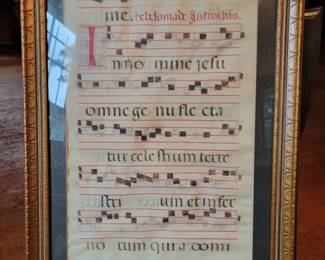 me. hebdomade Introitus.
In no mine jesu
omne ge nu fle cta
tur cele stium terre
stri um et in fer
no rum qui a domi